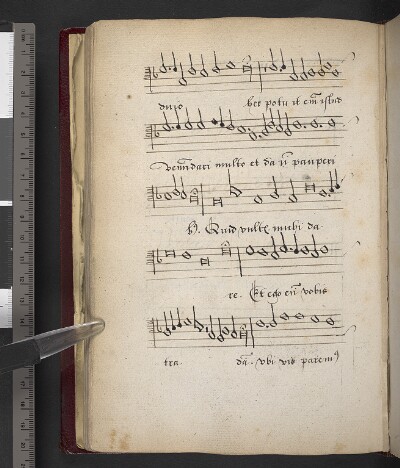 bet potuit em̄ istud
Venūdari multo et da ri pauperi
Quid vultis michi da
re. Et ego em̄ vobis
tra dā. Vbi vis paremꝰ